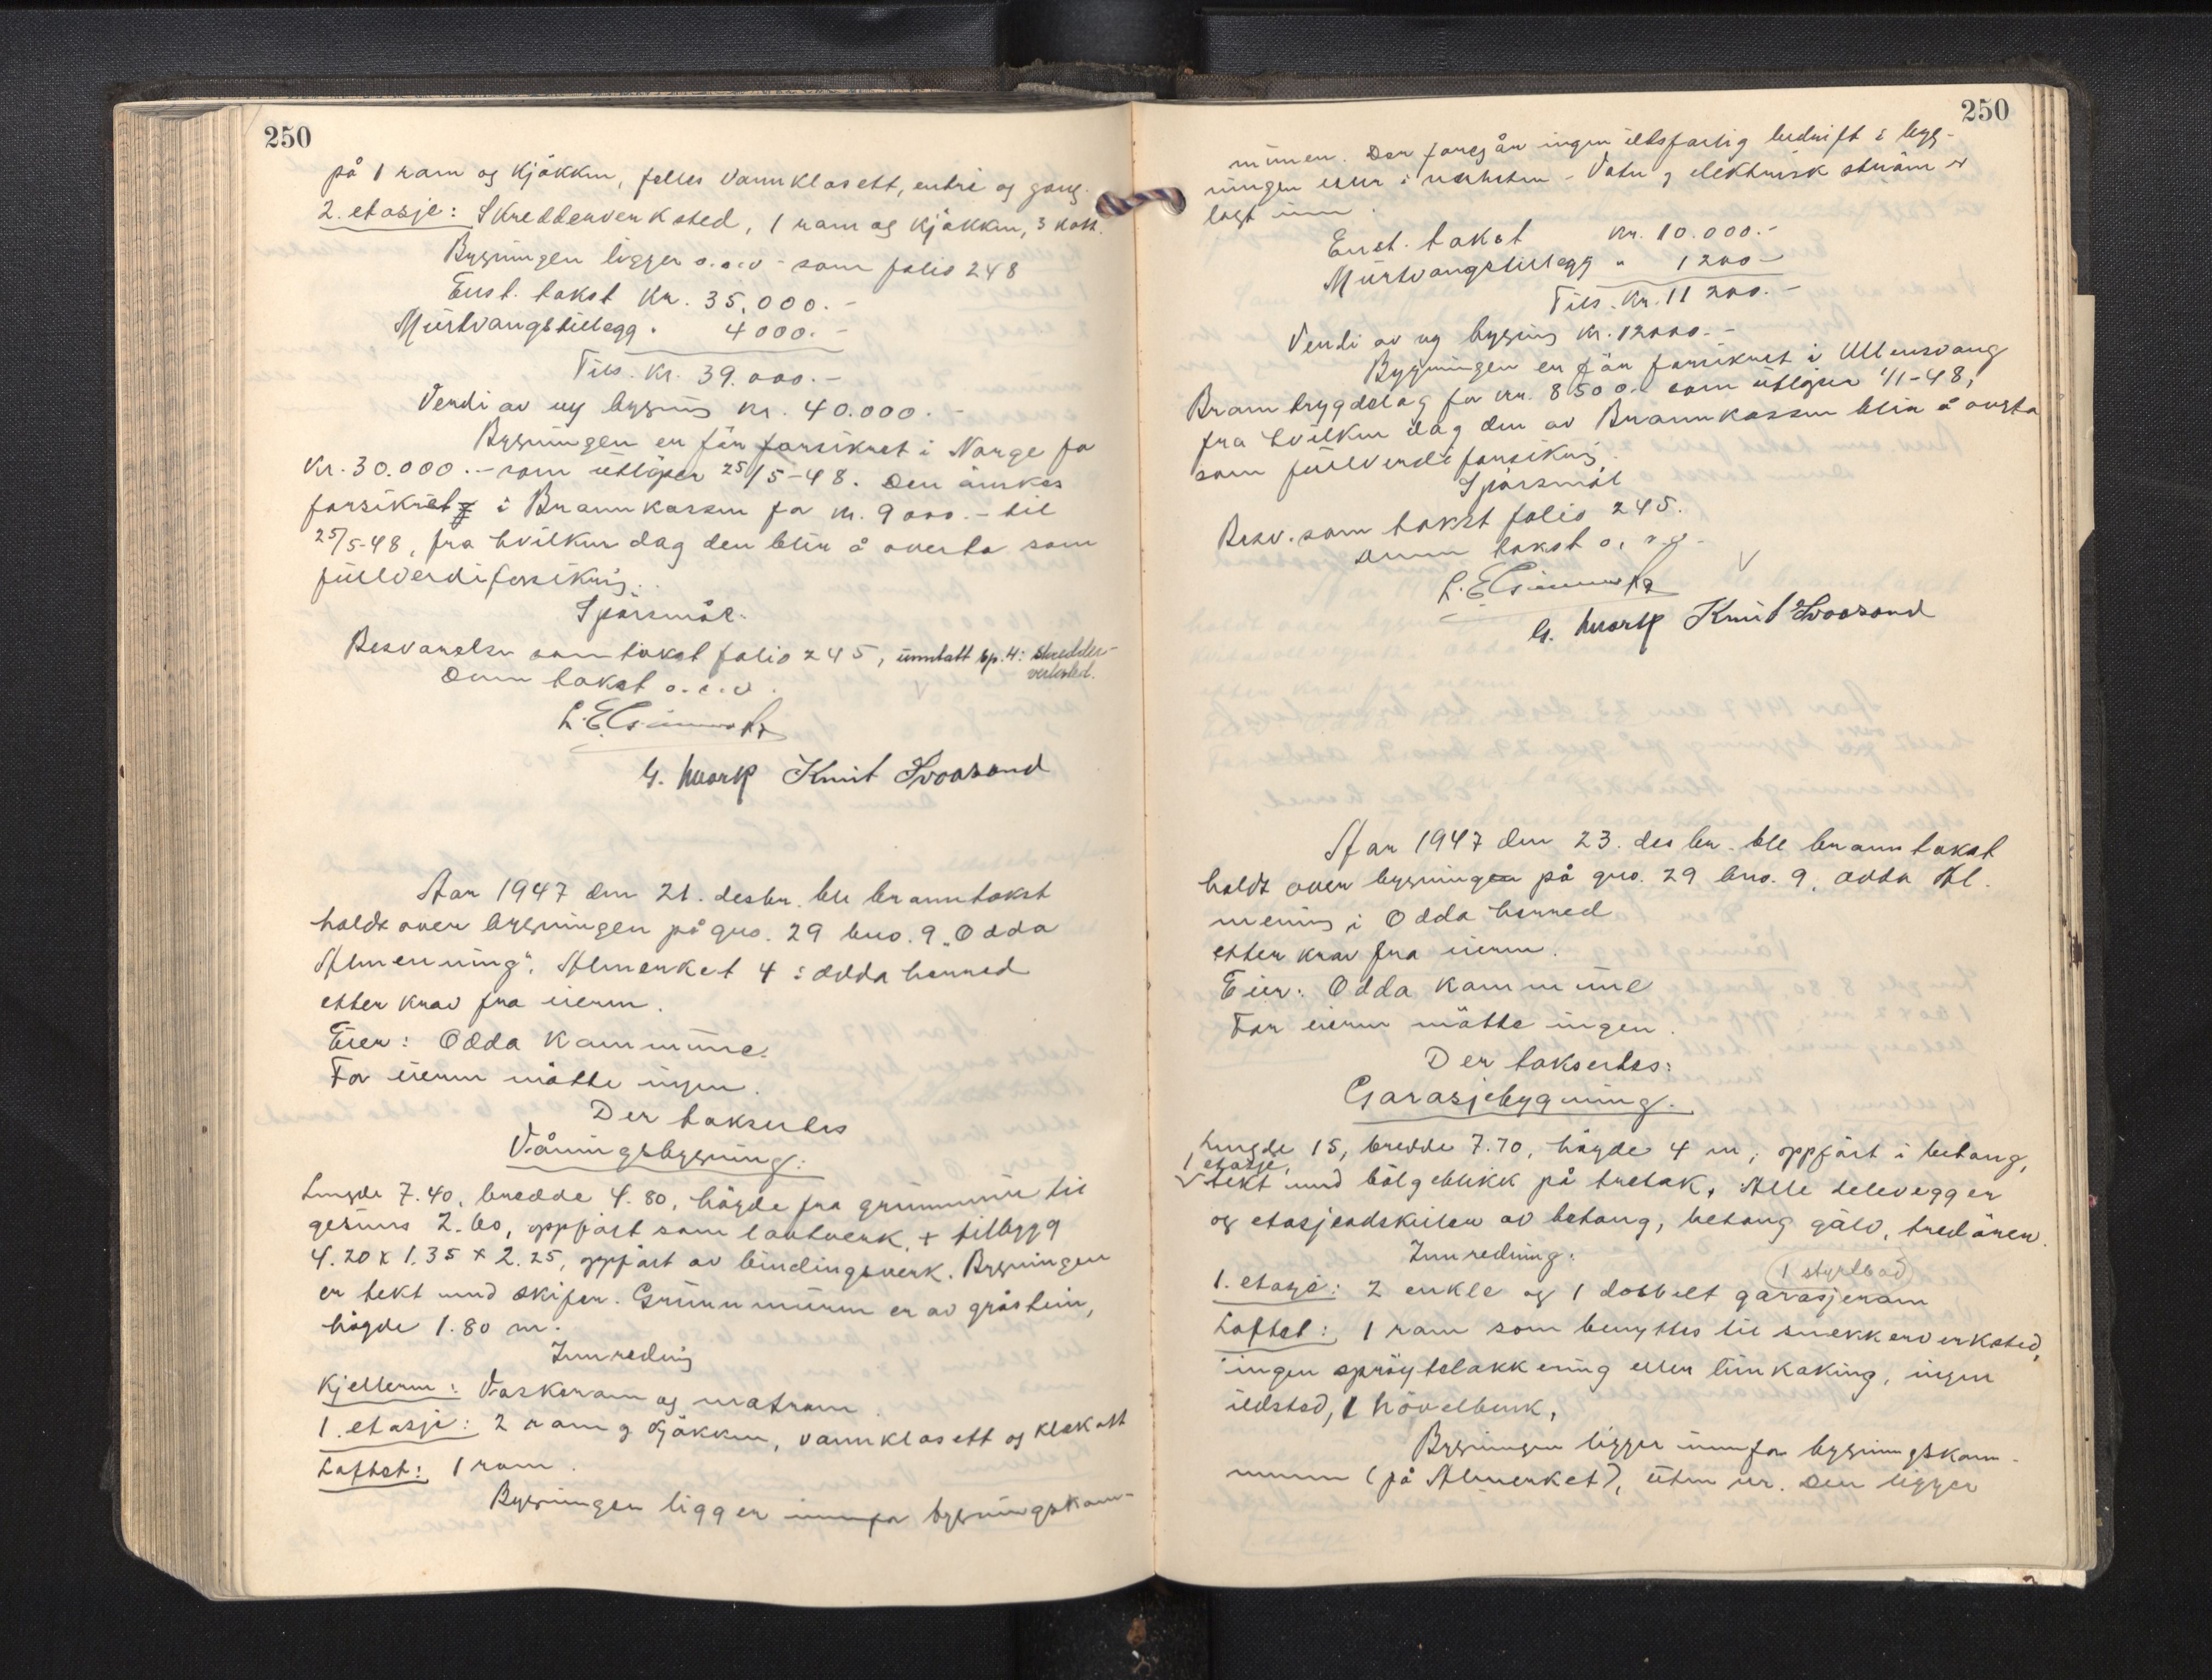 250
på 1 rom og kjøkken, felles vannklosett, entre og gang.
2. etasje: Skredderverksted, 1 rom og kjøkken, 3 kott.
Bygningen ligger o.s.v - som folio 248
Erst. takst Kr. 35.000.-
Murtvangstillegg " 4000.-
Tils. Kr. 39.000.-
Verdi av ny bygning kr. 40.000.-
Bygningen er før forsikret i Norge for
Kr. 30.000.- som utløper 25/5-48. Den ønskes
forsikret i Brannkassen for kr. 9000.- til
25/5-48, fra hvilken dag den blir å overta som
fullverdiforsikring.
Spørsmål.
Besvarelse som takst folio 245, unntatt sp. 4: skredder-
verksted.
Denne takst o.s.v.
G. Mork Knut Svoasand
Aar 1947 den 21. desbr. ble branntakst
holdt over bygningen på gno. 29 bno. 9 „Odda
Almenning", Almerket 4 i Odda herred
etter krav fra eieren.
Eier: Odda kommune.
For eieren møtte ingen.
Der takseertes
Våningsbygning:
Lengde 7.40, bredde 4.80, høyde fra grunnmur til
gesims 2.60, oppført som laftverk, + tilbygg
4.20 x 1.35 x 2.25, oppført av bindingsverk. Bygningen
er tekt med skifer. Grunnmuren er av gråstein,
høyde 1.80 m.
Innredning
Kjelleren: Vaskerom og matrom.
1. etasje: 2 rom og kjøkken, vannklosett og kleskott
Loftet: 1 rom.
Bygningen ligger innenfor bygningskom-
250
munen. Der foregår ingen ildsfarlig bedrift i byg-
ningen eller i nærheten - Vatn og elektrisk strøm er
lagt inn.
Erst. takst kr. 10.000.-
Murtvangstillegg " 1200.-
Tils. Kr. 11 200.-
Verdi av ny bygning kr. 12000.-
Bygningen er før forsikret i Ullensvang
Branntrygdelag for kr. 8500.- som utløper 1/1-48,
fra hvilken dag den av Brannkassen blir å overta
som fullverdiforsikring.
Spørsmål
Besv. som takst folio 245.
Denne takst o.s.v.
G. Mork Knut Svoasand
Aar 1947 den 23. desbr. ble branntakst
holdt over bygningen på gno. 29 bno. 9, Odda Al-
mening i Odda herred
etter krav fra eieren.
Eier: Odda kommune
For eieren møtte ingen.
Der takseertes:
Garasjebygning.
Lengde 15, bredde 7.70, høyde 4 m, oppført i betong,
1 etasje,
tekt med bølgeblikk på tretak. Alle delevegger
og etasjeadskillen av betong, betong gølv, tredører.
Innredning:
1 styrtbad
1. etasje: 2 enkle og 1 dobbelt garasjerom
Loftet: 1 rom som benyttes til snekkerverksted,
ingen sprøytelakkering eller limkoking, ingen
ildsted, 1 høvelbenk,
Bygningen ligger innenfor bygningskom-
munen (på Almerket), uten nr. Den ligger